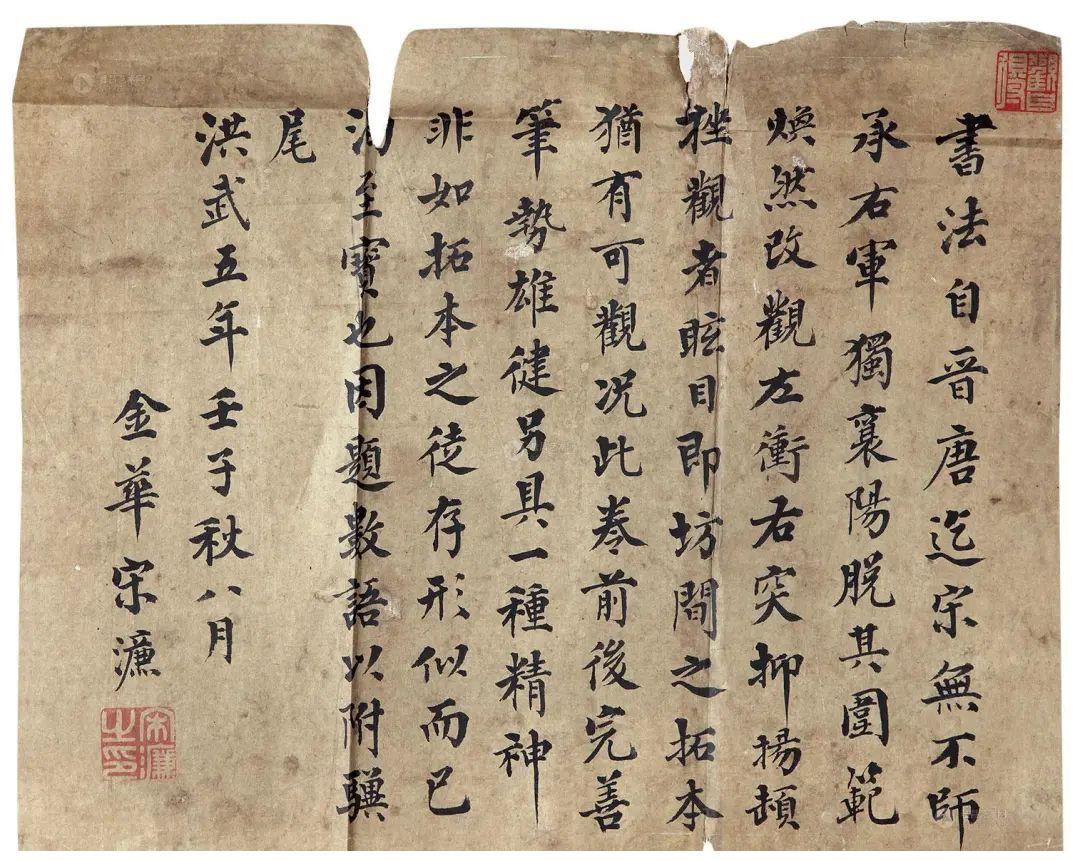 書法自晉唐迄宋無不師
承右軍獨襄陽脫其圍範
煥然改觀左衝右突抑揚頓
挫觀者眩目即坊間之拓本
猶有可觀况此卷前後完善
筆勢雄健另具一種精神
非如拓本之徒存形似而已
洵至寶也因題數語以附驥
尾
洪武五年壬子秋八月
金華宋濂
宋濂之印